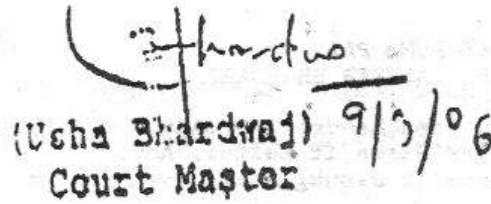 (Usha Bhardwaj) 9/3/06
Court Master